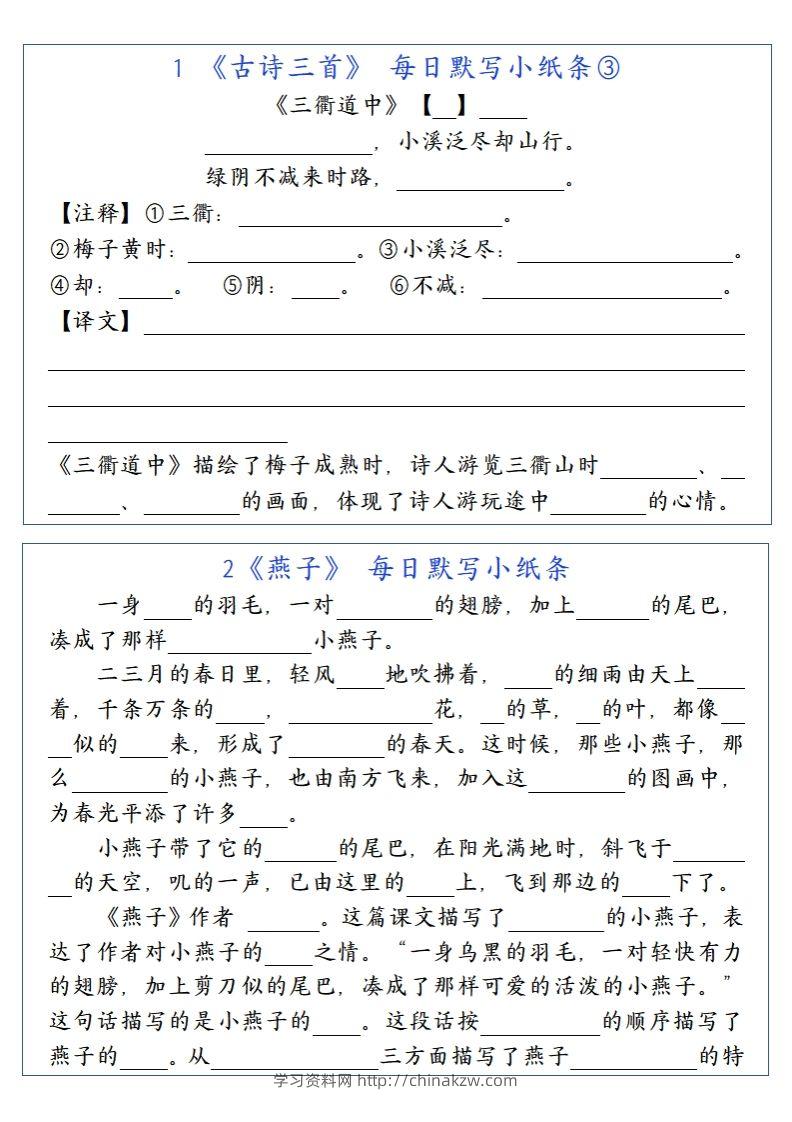 1 《古诗三首》 每日默写小纸条③
《三衢道中》【__】____
______________，小溪泛尽却山行。
绿阴不减来时路，______________。
【注释】①三衢：______________________。
②梅子黄时：______________。③小溪泛尽：__________________。
④却：____。 ⑤阴：____。 ⑥不减：____________________。
【译文】__________________________________________________
__________________________________________________________
__________________________________________________________
____________________
《三衢道中》描绘了梅子成熟时，诗人游览三衢山时________、__
______、________的画面，体现了诗人游玩途中________的心情。
2《燕子》 每日默写小纸条
一身____的羽毛，一对________的翅膀，加上______的尾巴，
凑成了那样____________小燕子。
二三月的春日里，轻风____地吹拂着，____的细雨由天上____
着，千条万条的____，____________花，__的草，__的叶，都像__
__似的____来，形成了________的春天。这时候，那些小燕子，那
么________的小燕子，也由南方飞来，加入这________的图画中，
为春光平添了许多____。
小燕子带了它的______的尾巴，在阳光满地时，斜飞于______
__的天空，叽的一声，已由这里的____上，飞到那边的____下了。
《燕子》作者 ______。这篇课文描写了________的小燕子，表
达了作者对小燕子的____之情。“一身乌黑的羽毛，一对轻快有力
的翅膀，加上剪刀似的尾巴，凑成了那样可爱的活泼的小燕子。”
这句话描写的是小燕子的____。这段话按__________的顺序描写了
燕子的____。从______________三方面描写了燕子__________的特
学习资料网 http://chinakzw.com